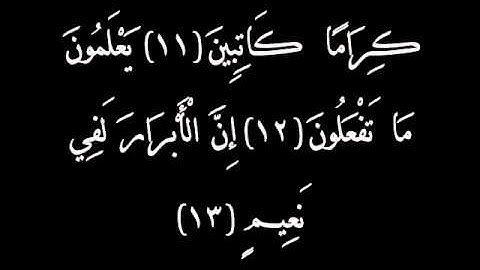 كِرَامًا كَاتِبِينَ (١١) يَعْلَمُونَ
مَا تَفْعَلُونَ (١٢) إِنَّ الْأَبْرَارَ لَفِي
نَعِيمٍ (١٣)